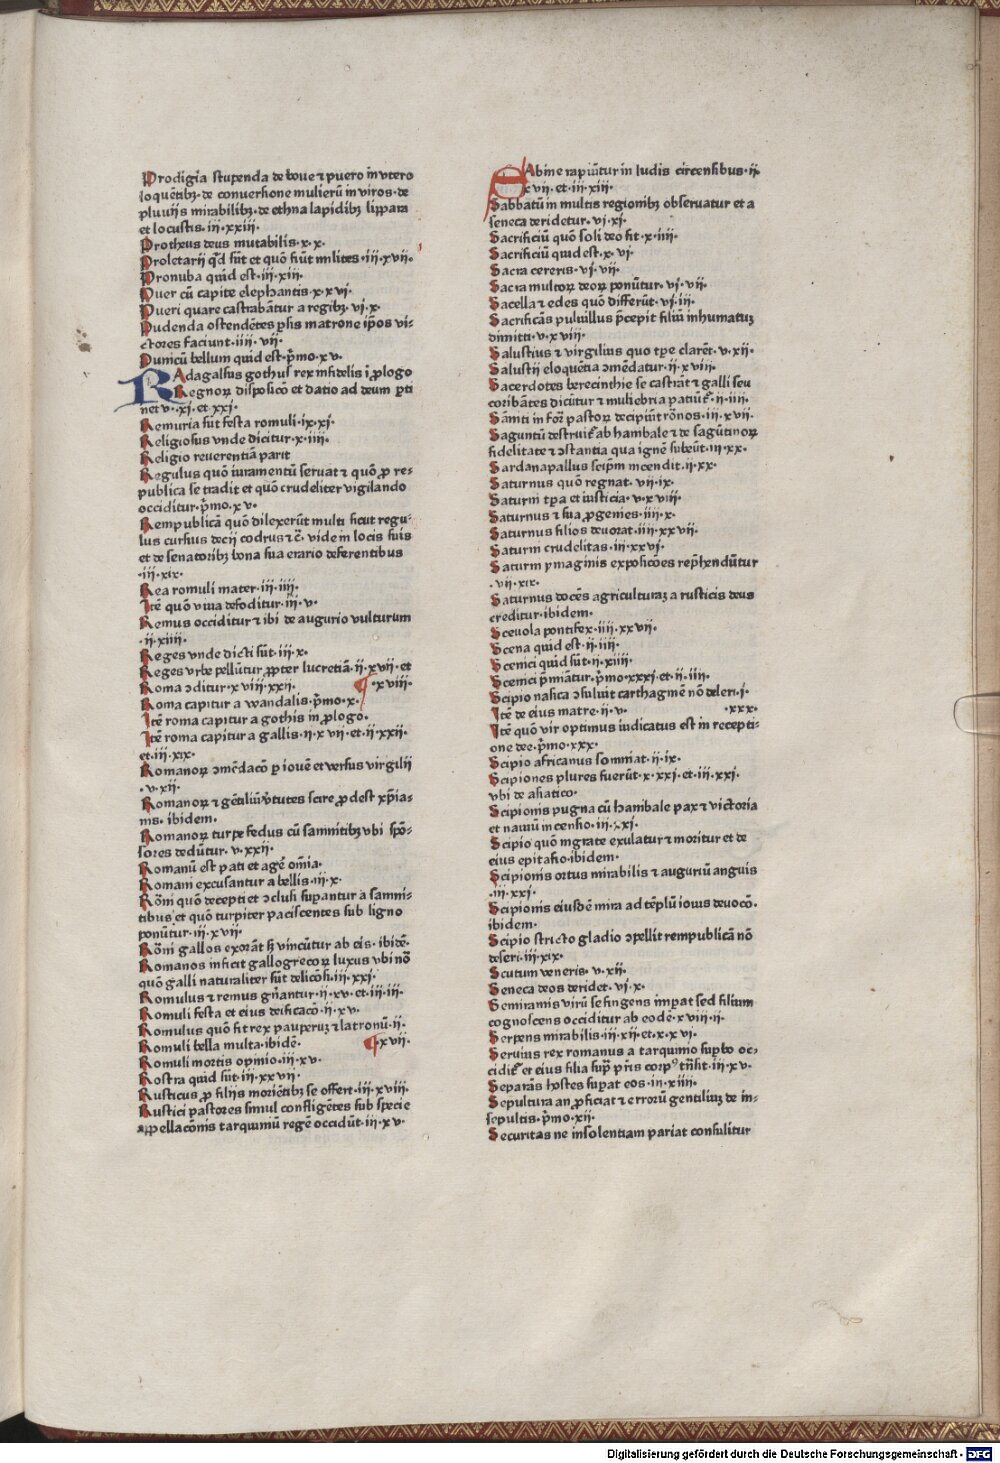 Prodigia stupenda de boue ⁊ puero in vtero
loquētibꝫ· de conuersione mulierū in viros· de
pluuijs mirabilibꝫ· de ethna lapidibꝫ lippara
et locustis· iij· xxiij·
Protheus deus mutabilis· x· x·
Proletarij qd sūt et quō fiūt milites· iij· xvij·
Pronuba quid est· iij· xiij·
Puer cū capite elephantis· x· xvj·
Pueri quare castrabātur a regibꝫ· vj· x·
Pudenda ostendētes ꝑsis matrone ip̄os vi-
ctores faciunt· iiij· vij·
Punicū bellum quid est· p̄mo· xv·
RAdagasus gothus rex infidelis ī ꝓlogo
Regnoꝝ dispositō et datio ad deum ꝑti
net v· xj· et xxj·
Remuria sūt festa romuli· ix· xj·
Religiosus vnde dicitur· x· iiij·
Religio reuerentiā parit
Regulus quō iuramentū seruat ⁊ quō ꝓ re-
publica se tradit et quō crudeliter vigilando
occiditur· p̄mo· xv·
Rempublicā quō dilexerūt multi sicut regu-
lus cursius decij codrus ⁊ c̄· videm locis suis
et de senatoribꝫ bona sua erario deferentibus
·iij· xix·
Rea romuli mater· iij· iiij·
Itē quō viua defoditur· iij· v·
Remus occiditur ⁊ ibi de augurio vulturum
·ij· xiiij·
Reges vnde dicti sūt· iij· x·
Reges vrbe pellūtur ꝓpter lucretiā· ij· xvij· et
Roma ↄditur· xviij· xxij· ¶ ·xviij·
Roma capitur a wandalis· p̄mo· x·
Itē roma capitur a gothis in ꝓlogo·
Itē roma capitur a gallis· ij· xvij· et· ij· xxij·
et· iij· xix·
Romanoꝝ ↄmēdacō ꝑ iouē et versus virgilij
·v· xij·
Romanoꝝ ⁊ gētiliū v̄tutes scire ꝓdest xp̄ia-
nis· ibidem·
Romanoꝝ turpe fedus cū samnitibꝫ vbi spō-
sores dedūtur· v· xxij·
Romanū est pati et agē om̄ia·
Romani excusantur a bellis· iij· x·
Rōni quō decepti et ↄclusi supantur a samni-
tibus et quō turpiter paciscentes sub ligno
ponūtur· iij· xvij·
Rōni gallos exorāt sꝫ vincūtur ab eis· ibidē·
Romanos inficit gallogrecoꝝ luxus vbi nō
quō galli naturaliter sūt delicōsi· iij· xxj·
Romulus ⁊ remus gn̄antur· ij· xv· et· iij· iij·
Romuli festa et eius deificacō· ij· xv·
Romulus quō fit rex pauperuꝫ ⁊ latronū· ij·
Romuli bella multa· ibidē· ¶ ·xvij·
Romuli mortis opinio· iij· xv·
Rostra quid sūt· iij· xxvij·
Rusticus ꝓ filijs moriētibꝫ se offert· iij· xviij·
Rustici pastores simul confligētes sub specie
appellacōnis tarquiniū regē occidūt· iij· xv·
SAbine rapiūtur in ludis circensibus· ij·
xvij· et· iij· xiij·
Sabbatū in multis regionibꝫ obseruatur et a
seneca deridetur· vj· xj·
Sacrificiū quō soli deo fit· x· iiij·
Sacrificiū quid est· x· vj·
Sacra cereris· vj· vij·
Sacra multoꝝ deoꝝ ponūtur· vj· vij·
Sacella ⁊ edes quō differūt· vj· iij·
Sacrificās puluillus p̄cepit filiū inhumatuꝫ
dimitti· v· xviij·
Salustius ⁊ virgilius quo tꝑe clarēt· v· xij·
Salustij eloquētia ↄmēdatur· ij· xviij·
Sacerdotes berecinthie se castrāt ⁊ galli seu
coribātes dicūtur ⁊ muliebria patiūt᷑· ij· iiij·
Sāniti in for̄ pastoꝝ decipiūt rōnos· iij· xvij·
Saguntū destruit᷑ ab hambale ⁊ de sagūtinoꝝ
fidelitate ⁊ ↄstantia qua ignē subeūt· iij· xx·
Sardanapallus seip̄m incendit· ij· xx·
Saturnus quō regnat· vij· ix·
Saturni tꝑa et iusticia· v· xviij·
Saturnus ⁊ sua ꝓgenies· iiij· x·
Saturnus filios deuorat· iiij· xxvij·
Saturni crudelitas· iij· xxvj·
Saturni ymaginis exposicōes rep̄hendūtur
·vij· xix·
Saturnus docēs agriculturaꝫ a rusticis deus
creditur· ibidem·
Sceuola pontifex· iiij· xxvij·
Scena quid est· ij· iiij·
Scenici quid sūt· ij· xiiij·
Scenici p̄miātur· p̄mo· xxxj· et· ij· iiij·
Scipio nasica ↄsuluit carthaginē nō deleri· j·
Itē de eius matre· ij· v· ·xxx·
Itē quō vir optimus iudicatus est in recepti-
one dee· p̄mo· xxx·
Scipio africanus somniat· ij· ix·
Scipiones plures fuerūt· x· xxj· et· iij· xxj·
vbi de asiatico·
Scipionis pugna cū hambale pax ⁊ victoria
et nauiū incensio· iij· xxj·
Scipio quō ingrate exulatur ⁊ moritur et de
eius epitafio· ibidem·
Scipionis ortus mirabilis ⁊ auguriū anguis
·iij· xxj·
Scipionis eiusdē mira ad tēplū iouis deuocō·
ibidem·
Scipio stricto gladio ↄpellit rempublicā nō
deseri· iij· xix·
Scutum veneris· v· xij·
Seneca deos deridet· vj· x·
Semiramis virū se fingens imꝑat sed filium
cognoscens occiditur ab eodē· xviij· ij·
Serpens mirabilis· iij· xij· et· x· xvj·
Seruius rex romanus a tarquinio suꝑbo oc-
cidit᷑ et eius filia suꝑ p̄ris corpꝰ trāsit· iij· xv·
Separās hostes supat eos· iij· xiiij·
Sepultura an ꝓficiat ⁊ errorū gentiliuꝫ de in-
sepultis· p̄mo· xij·
Securitas ne insolentiam pariat consulitur
Digitalisierung gefördert durch die Deutsche Forschungsgemeinschaft - DFG